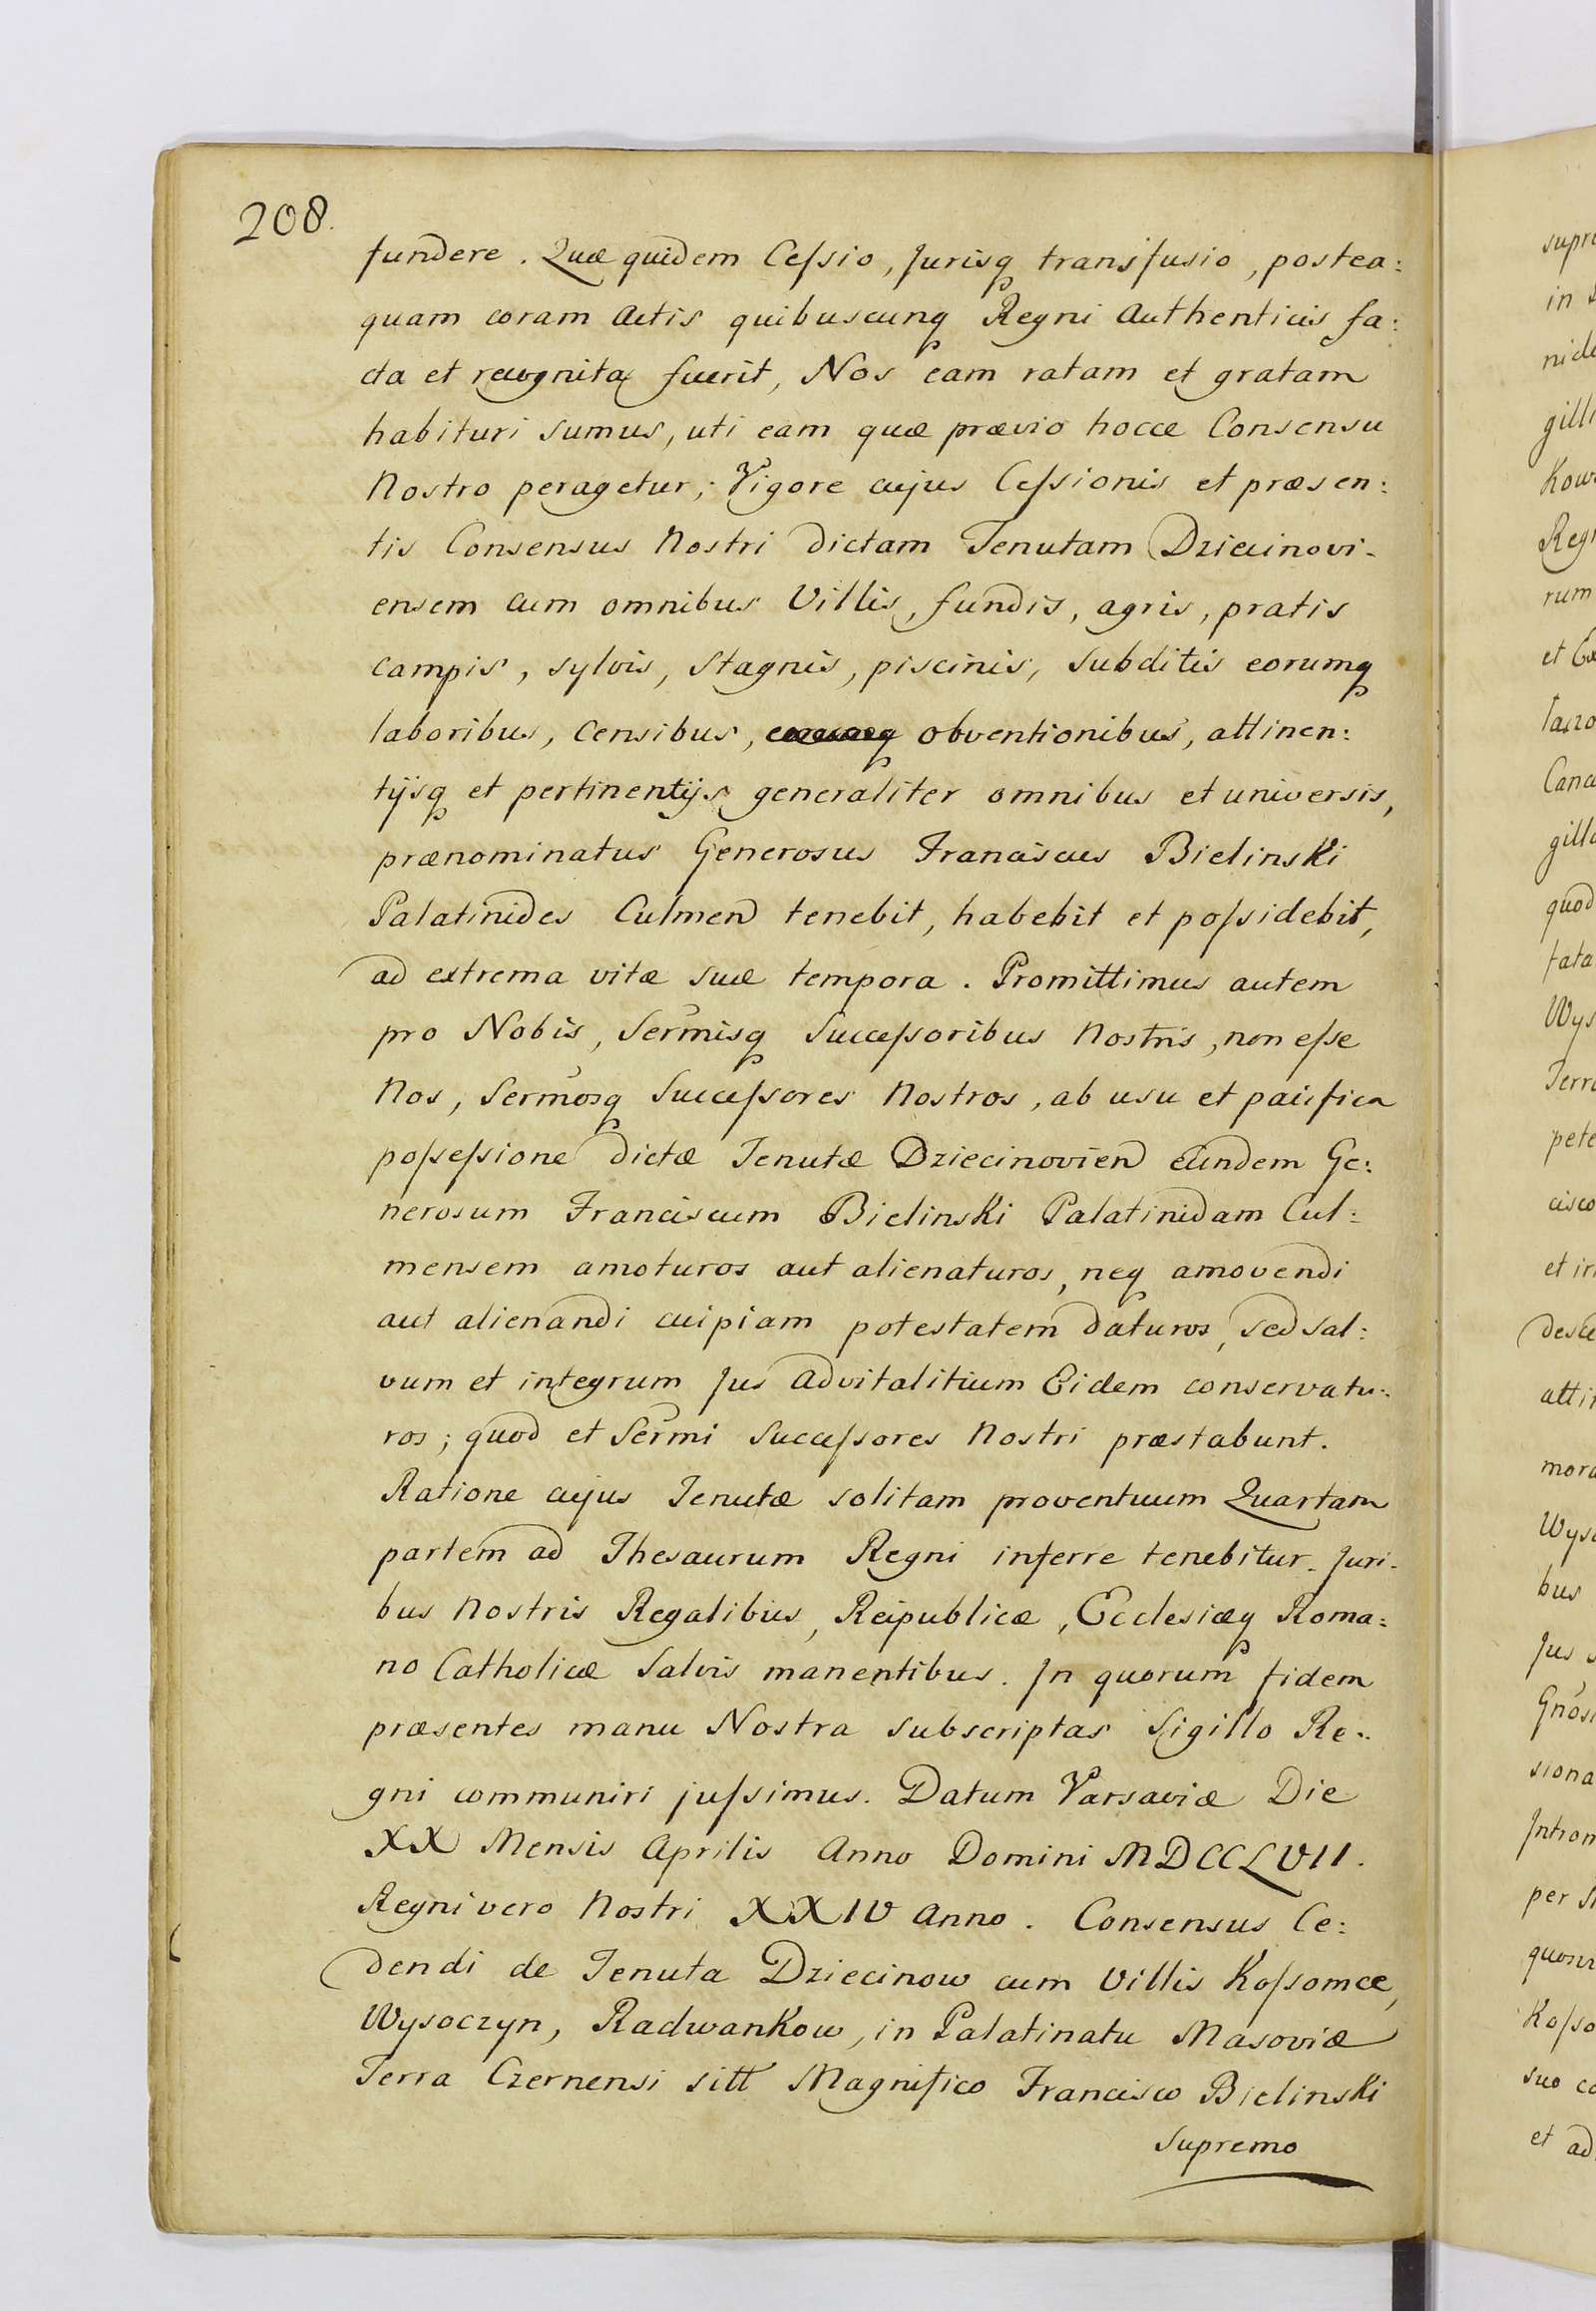 208.
fundere. Quæ quidem Cessio, Jurisq transfusio, postea:
quam coram Actis quibuscunq Regni Authenticis fa:
cta et recognita fuerit, Nos eam ratam et gratam
habituri sumus, uti eam quæ prævio hocce Consensu
Nostro peragetur; Vigore cujus Cessionis et præsen:
tis Consensus Nostri dictam Tenutam Dziecinovi-
ensem cum omnibus Villis, fundis, agris, pratis
campis, sylvis, stagnis, piscinis, subditis eorumq
laboribus, censibus, obventionibus, attinen:
tijsq et pertinentijs generaliter omnibus et universis,
prænominatus Generosus Franciscus Bielinski
Palatinides Culmen tenebit, habebit et possidebit,
ad extrema vitæ suæ tempora. Promittimus autem
pro Nobis, Sermisq Successoribus Nostris, non esse
Nos, Sermosq Successores Nostros, ab usu et pacifica
possessione dictæ Tenutæ Dziecinovien eundem Ge:
nerosum Franciscum Bielinski Palatinidam Cul:
mensem amoturos aut alienaturos, neq amovendi
aut alienandi cuipiam potestatem daturos, sed sal:
vum et integrum Jus advitalitium Eidem conservatu:
ros; quod et Sermi Successores Nostri præstabunt.
Ratione cujus Tenutæ solitam proventuum Quartam
partem ad Thesaurum Regni inferre tenebitur. Juri-
bus Nostris Regalibus, Reipublicæ, Ecclesiæq Roma:
no Catholicæ salvis manentibus. In quorum fidem
præsentes manu Nostra subscriptas Sigillo Re:
gni communiri jussimus. Datum Varsaviæ Die
XX Mensis Aprilis Anno Domini MDCCLVII.
Regni vero Nostri XXIV Anno. Consensus Ce:
dendi de Tenuta Dziecinow cum Villis Kossomce,
Wysoczyn, Radwankow, in Palatinatu Masoviæ
Terra Czernensi sitt Magnifico Francisco Bielinski
Supremo